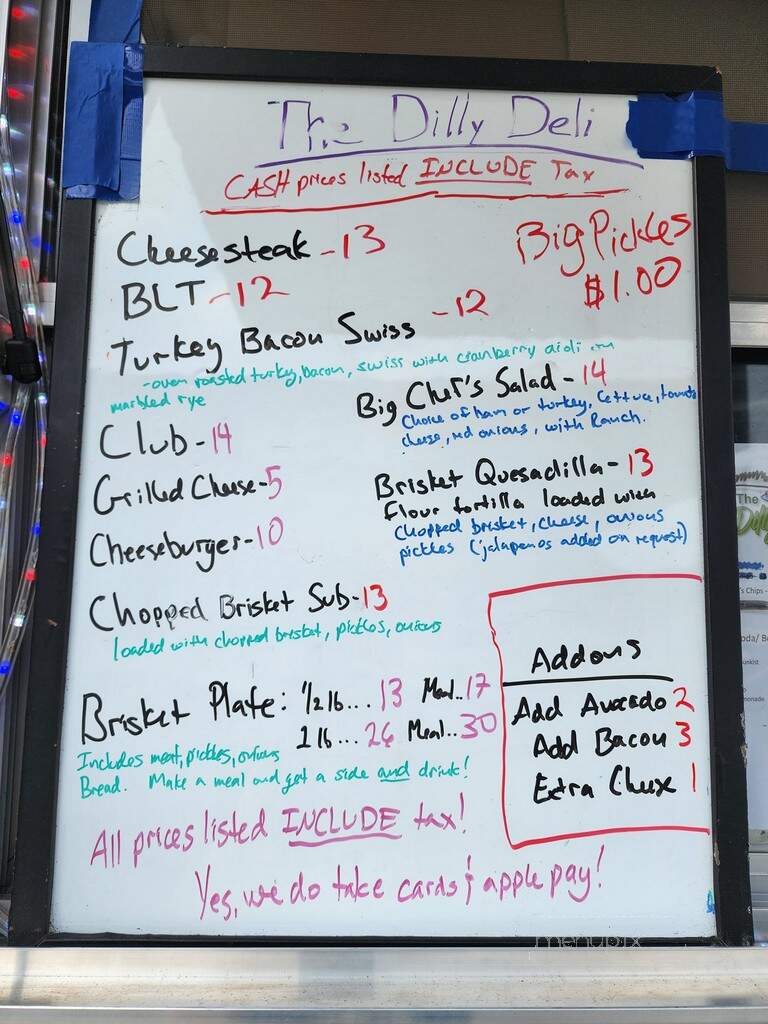 The Dilly Deli
CASH prices listed INCLUDE Tax
Cheesesteak - 13
Big Pickles
$1.00
BLT - 12
Turkey Bacon Swiss - 12
- oven roasted turkey, bacon, swiss with cranberry aioli on
marbled rye
Big Chef's Salad - 14
Choice of ham or turkey, lettuce, tomato
cheese, red onions, with Ranch.
Club - 14
Grilled Cheese - 5
Cheeseburger - 10
Brisket Quesadilla - 13
Flour tortilla loaded with
chopped brisket, cheese, onions
pickles (jalapenos added on request)
Chopped Brisket Sub - 13
loaded with chopped brisket, pickles, onions
Brisket Plate: 1/2 lb... 13 Meal.. 17
1 lb... 26 Meal.. 30
Includes meat, pickles, onions
Bread. Make a meal and get a side and drink!
Addons
Add Avocado 2
Add Bacon 3
Extra Cheese 1
All prices listed INCLUDE tax!
Yes, we do take cards & apple pay!
The
Dilly
menupix